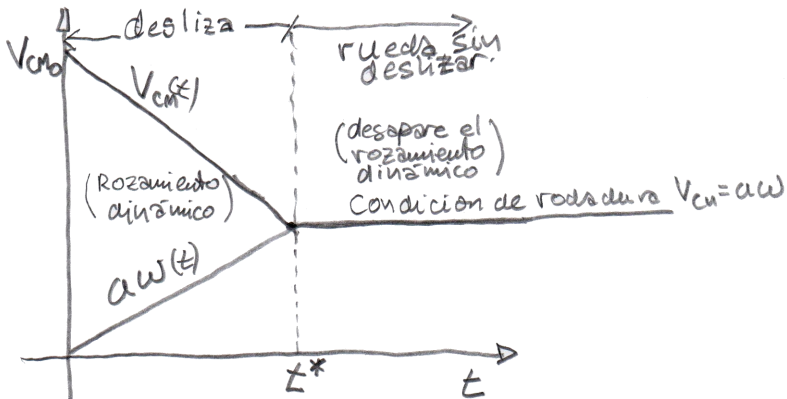 desliza
rueda sin
deslizar.
V_CM0
V_CM(t)
(desapare el
rozamiento
dinámico)
(Rozamiento
dinámico)
Condición de rodadura V_CM=aω
aω(t)
t*
t